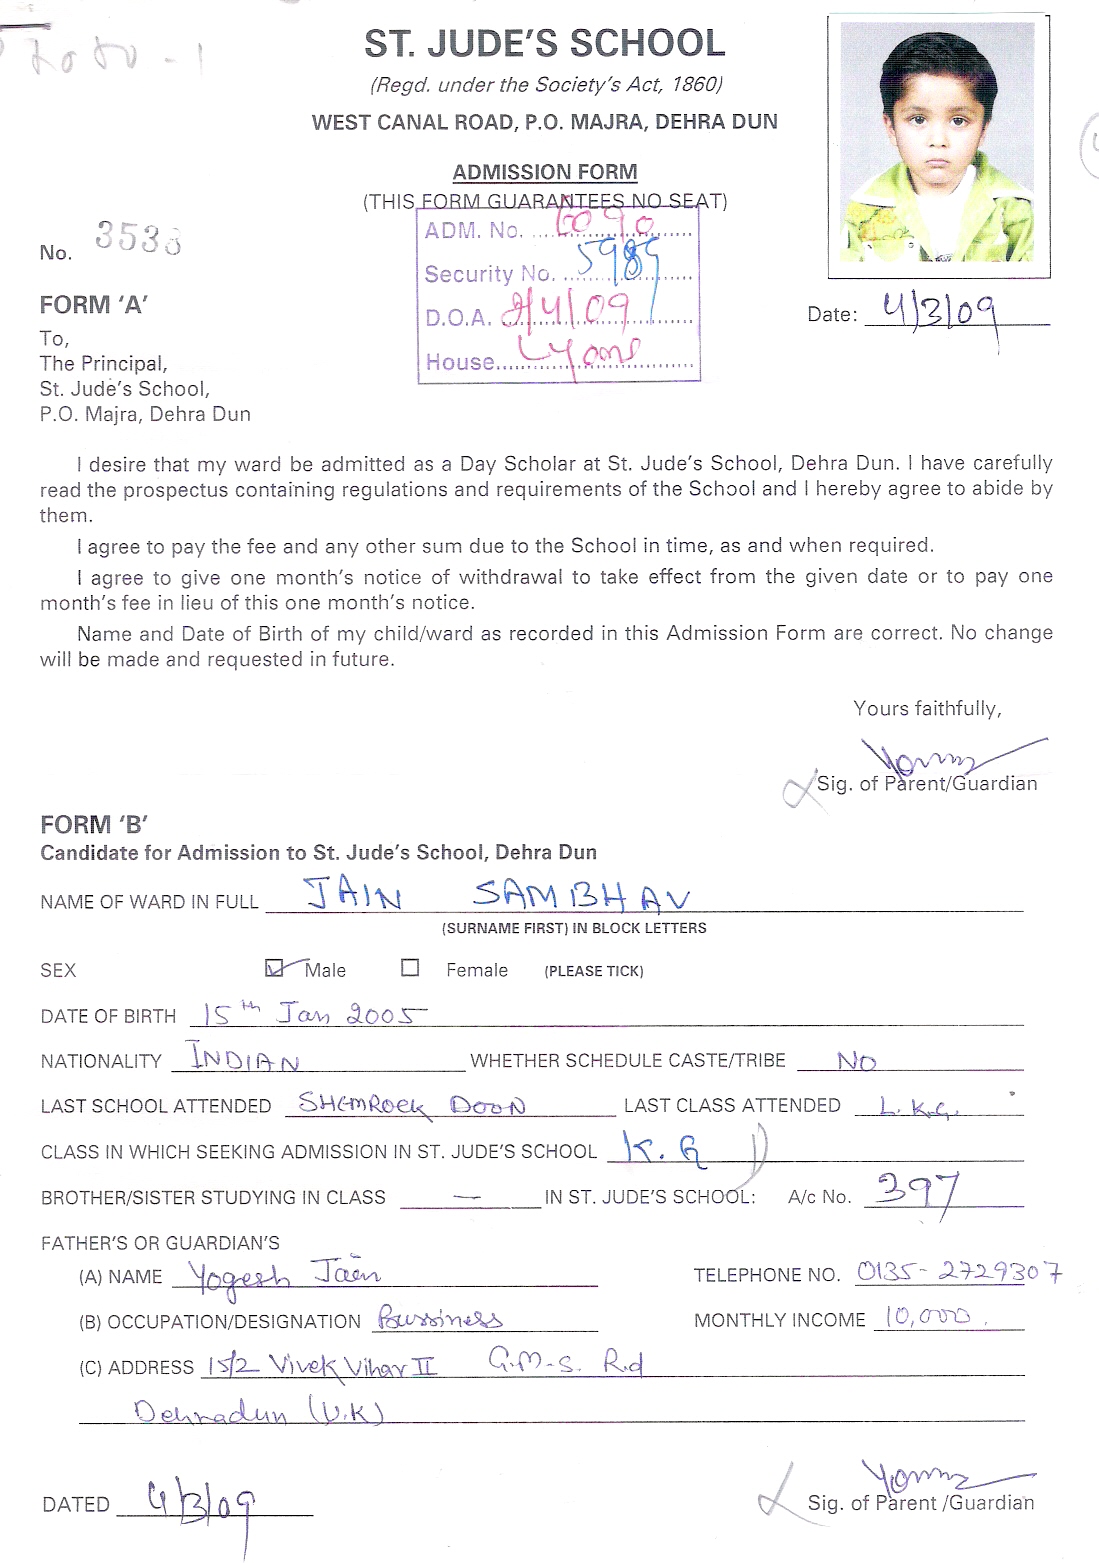 ST. JUDE'S SCHOOL
(Regd. under the Society's Act, 1860)
WEST CANAL ROAD, P.O. MAJRA, DEHRA DUN
ADMISSION FORM
(THIS FORM GUARANTEES NO SEAT)
No. 3538
ADM. No. 6090
Security No. 5989
D.O.A. 2/4/09
House Lyons
Date: 4/3/09
FORM 'A'
To,
The Principal,
St. Jude's School,
P.O. Majra, Dehra Dun
I desire that my ward be admitted as a Day Scholar at St. Jude's School, Dehra Dun. I have carefully
read the prospectus containing regulations and requirements of the School and I hereby agree to abide by
them.
I agree to pay the fee and any other sum due to the School in time, as and when required.
I agree to give one month's notice of withdrawal to take effect from the given date or to pay one
month's fee in lieu of this one month's notice.
Name and Date of Birth of my child/ward as recorded in this Admission Form are correct. No change
will be made and requested in future.
Yours faithfully,
Sig. of Parent/Guardian
FORM 'B'
Candidate for Admission to St. Jude's School, Dehra Dun
NAME OF WARD IN FULL JAIN SAMBHAV
(SURNAME FIRST) IN BLOCK LETTERS
SEX Male Female (PLEASE TICK)
DATE OF BIRTH 15th Jan 2005
NATIONALITY INDIAN WHETHER SCHEDULE CASTE/TRIBE NO
LAST SCHOOL ATTENDED SHEMROCK DOON LAST CLASS ATTENDED L.K.G.
CLASS IN WHICH SEEKING ADMISSION IN ST. JUDE'S SCHOOL K.G
BROTHER/SISTER STUDYING IN CLASS — IN ST. JUDE'S SCHOOL: A/c No. 397
FATHER'S OR GUARDIAN'S
(A) NAME Yogesh Jain TELEPHONE NO. 0135-2729307
(B) OCCUPATION/DESIGNATION Bussiness MONTHLY INCOME 10,000.
(C) ADDRESS 15/2 Vivek Vihar II G.M.S. Rd
Dehradun (U.K)
DATED 4/3/09
Sig. of Parent /Guardian